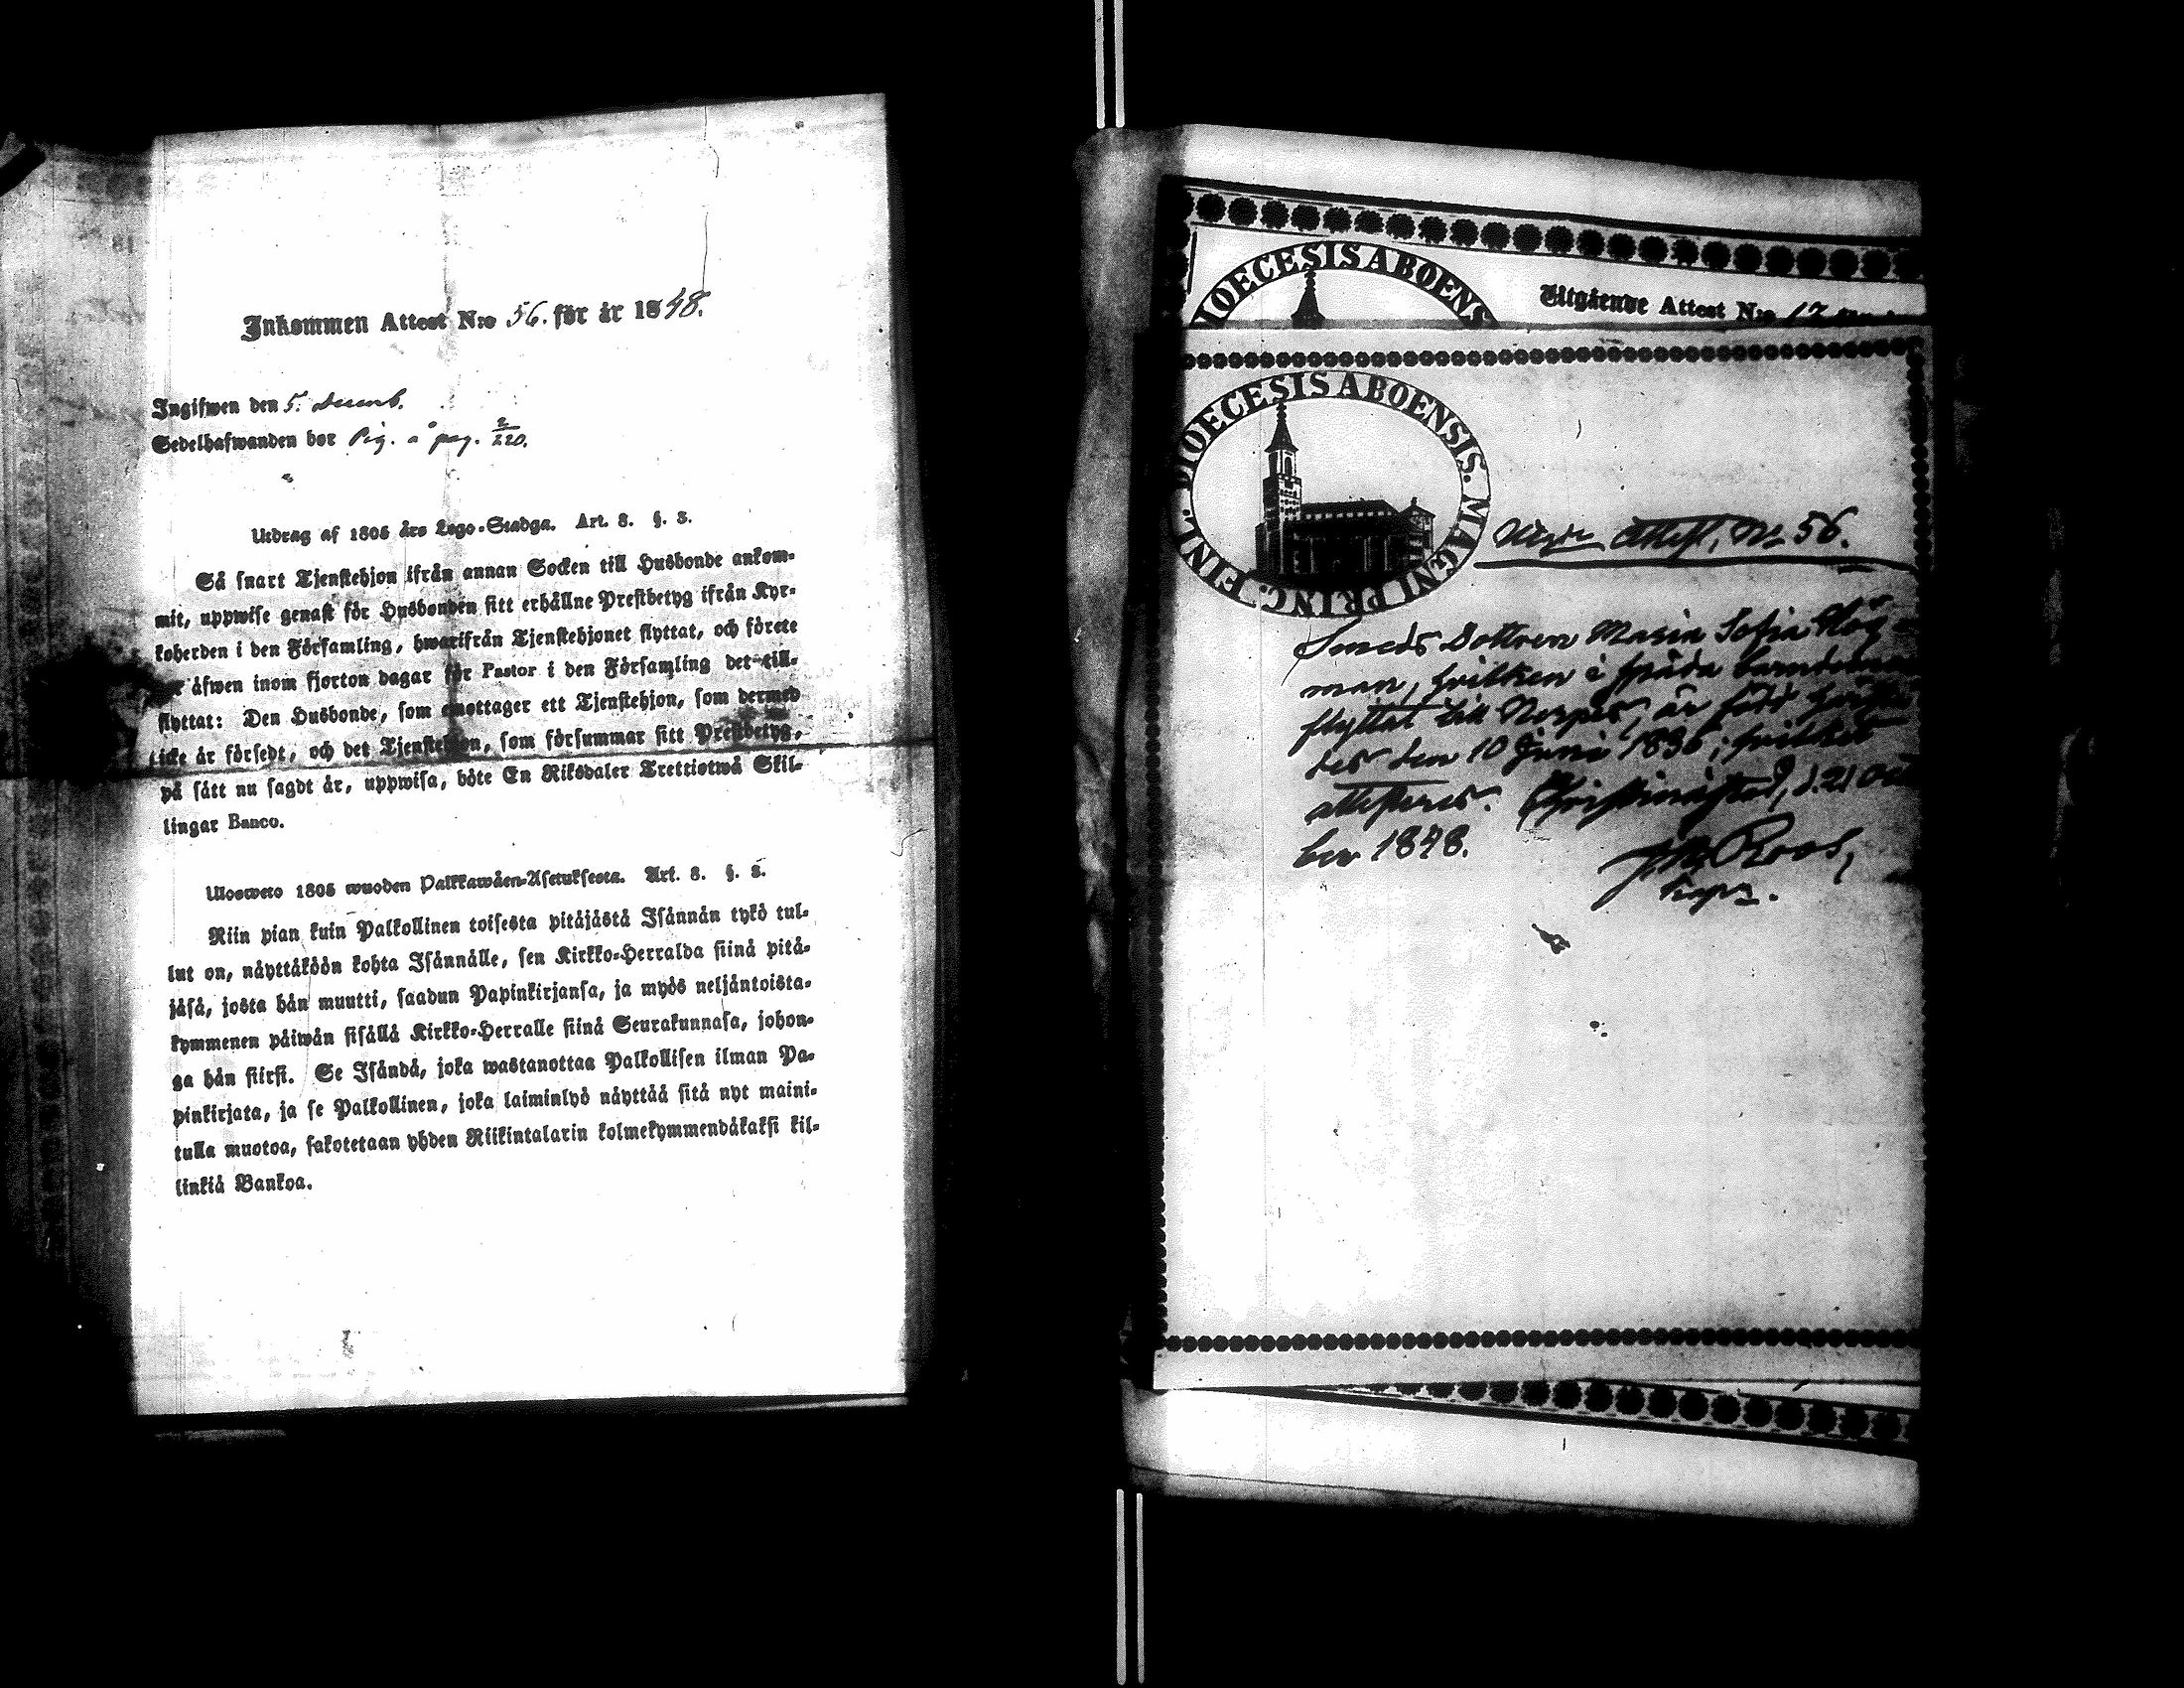 Inkommen Attest N:o 56. för år 1848.
Ingifwen den 5. Decemb.
Sedelhafwanden bor Pig. å pag. 2/220.
Utdrag af 1805 års Lego-Stadga. Art. 8. §. 3.
Så snart Tjenstehjon ifrån annan Socken till Husbonde ankom-
mit, uppwise genast för Husbonden sitt erhållne Prestbetyg ifrån Kyr-
koherden i den Församling, hwarifrån Tjenstehjonet flyttat, och förete
åfwen inom fjorton dagar för Pastor i den Församling det till-
flyttat: Den Husbonde, som emottager ett Tjenstehjon, som dermed
icke år försedt, och det Tjenstehjon, som försummar sitt Prestbetyg,
på sått nu sagdt år, uppwisa, böte En Riksdaler Trettiotwå Skil-
lingar Banco.
Ulosweto 1805 wuoden Palkkawåen-Asetuksesta. Art. 8. §. 3.
Niin pian kuin Palkollinen toisesta pitåjåstå Isånnån tykö tul-
lut on, nåyttåköön kohta Isånnålle, sen Kirkko-Herralda siinå pitå-
jåså, josta hån muutti, saadun Papinkirjansa, ja myös neljåntoista-
kymmenen påiwån sisållå Kirkko-Herralle siinå Seurakunnasa, johon-
ga hån siirsi. Se Isåndå, joka wastanottaa Palkollisen ilman Pa-
pinkirjata, ja se Palkollinen, joka laiminlyö nåyttåå sitå nyt maini-
tulla muotoa, sakotetaan yhden Riikintalarin kolmekymmendåkaksi kil-
linkiå Bankoa.
DIOECESIS ABOENS
Utgående Attest N:o 17
DIOECESIS ABOENSIS. MAGNI PRINC. FINL.
Attest, N:o 56.
Smeds Dottren Maria Sofia Hög-
man, hvilken i späda barndomen
flyttat till Nerpes, är född härstä-
des den 10 Juni 1836; hvilket
attesteras. Christinæstad, d. 21 Octo
ber 1848.
Roos,